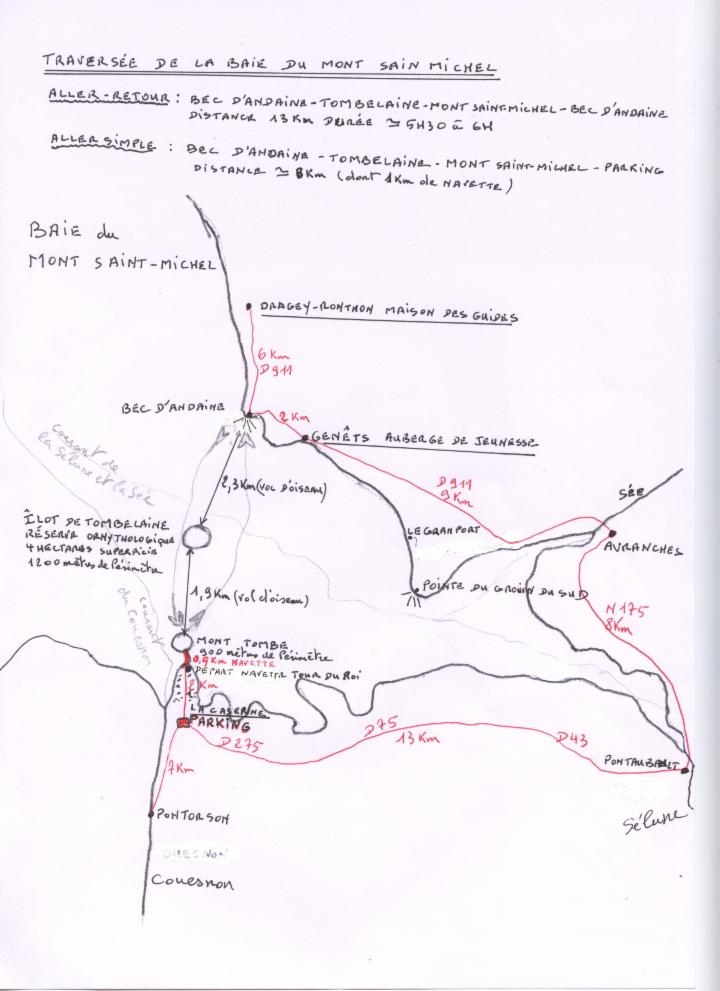 TRAVERSÉE DE LA BAIE DU MONT SAIN MICHEL
ALLER-RETOUR : BEC D'ANDAINE-TOMBELAINE-MONT SAINT-MICHEL-BEC D'ANDAINE
DISTANCE 13 Km DURÉE ≃ 5H30 à 6H
ALLER SIMPLE : BEC D'ANDAINE - TOMBELAINE - MONT SAINT-MICHEL - PARKING
DISTANCE ≃ 8Km (dont 1Km de NAVETTE)
BAIE du
MONT SAINT-MICHEL
DRAGEY-RONTHON MAISON DES GUIDES
6 Km
D911
BEC D'ANDAINE
2 Km
GENÊTS AUBERGE DE JEUNESSE
courant de
la Sélune et la Sée
2,3Km (VOL D'OISEAU)
D911
9Km
SÉE
ÎLOT DE TOMBELAINE
RÉSERVE ORNYTHOLOGIQUE
4 HECTARES SUPERFICIE
1200 mètres de Périmètre
LE GRANPORT
AVRANCHES
POINTE DU GROUIN DU SUD
1,9Km (vol d'oiseau)
N175
8Km
courant
du Couesnon
MONT TOMBE
900 mètres de Périmètre
0,5Km NAVETTE
DÉPART NAVETTE TOUR DU ROI
2 Km
LA CASERNE
PARKING
D275
D75
13 Km
D43
PONTAUBAULT
7Km
PONTORSON
Sélune
Couesnon